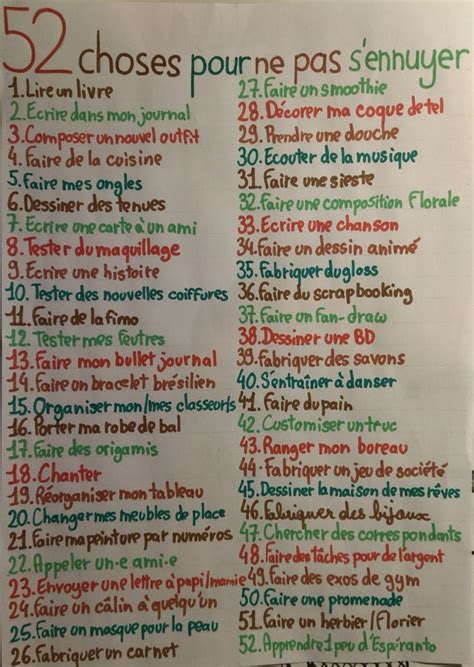 52 choses pour ne pas s'ennuyer
1. Lire un livre
2. Ecrire dans mon journal
3. Composer un nouvel outfit
4. Faire de la cuisine
5. Faire mes ongles
6. Dessiner des tenues
7. Ecrire une carte à un ami
8. Tester du maquillage
9. Ecrire une histoire
10. Tester des nouvelles coiffures
11. Faire de la fimo
12. Tester mes feutres
13. Faire mon bullet journal
14. Faire un bracelet brésilien
15. Organiser mon/mes classeur/s
16. Porter ma robe de bal
17. Faire des origamis
18. Chanter
19. Réorganiser mon tableau
20. Changer mes meubles de place
21. Faire ma peinture par numéros
22. Appeler un·e ami·e
23. Envoyer une lettre à papi/mamie
24. Faire un câlin à quelqu'un
25. Faire un masque pour la peau
26. Fabriquer un carnet
27. Faire un smoothie
28. Décorer ma coque de tel
29. Prendre une douche
30. Ecouter de la musique
31. Faire une sieste
32. Faire une composition Florale
33. Ecrire une chanson
34. Faire un dessin animé
35. Fabriquer du gloss
36. Faire du scrapbooking
37. Faire un fan-draw
38. Dessiner une BD
39. Fabriquer des savons
40. S'entraîner à danser
41. Faire du pain
42. Customiser un truc
43. Ranger mon boreau
44. Fabriquer un jeu de société
45. Dessiner la maison de mes rêves
46. Fabriquer des bijoux
47. Chercher des correspondants
48. Faire des tâches pour de l'argent
49. Faire des exos de gym
50. Faire une promenade
51. Faire un herbier/Florier
52. Apprendre 1 peu d'Espéranto